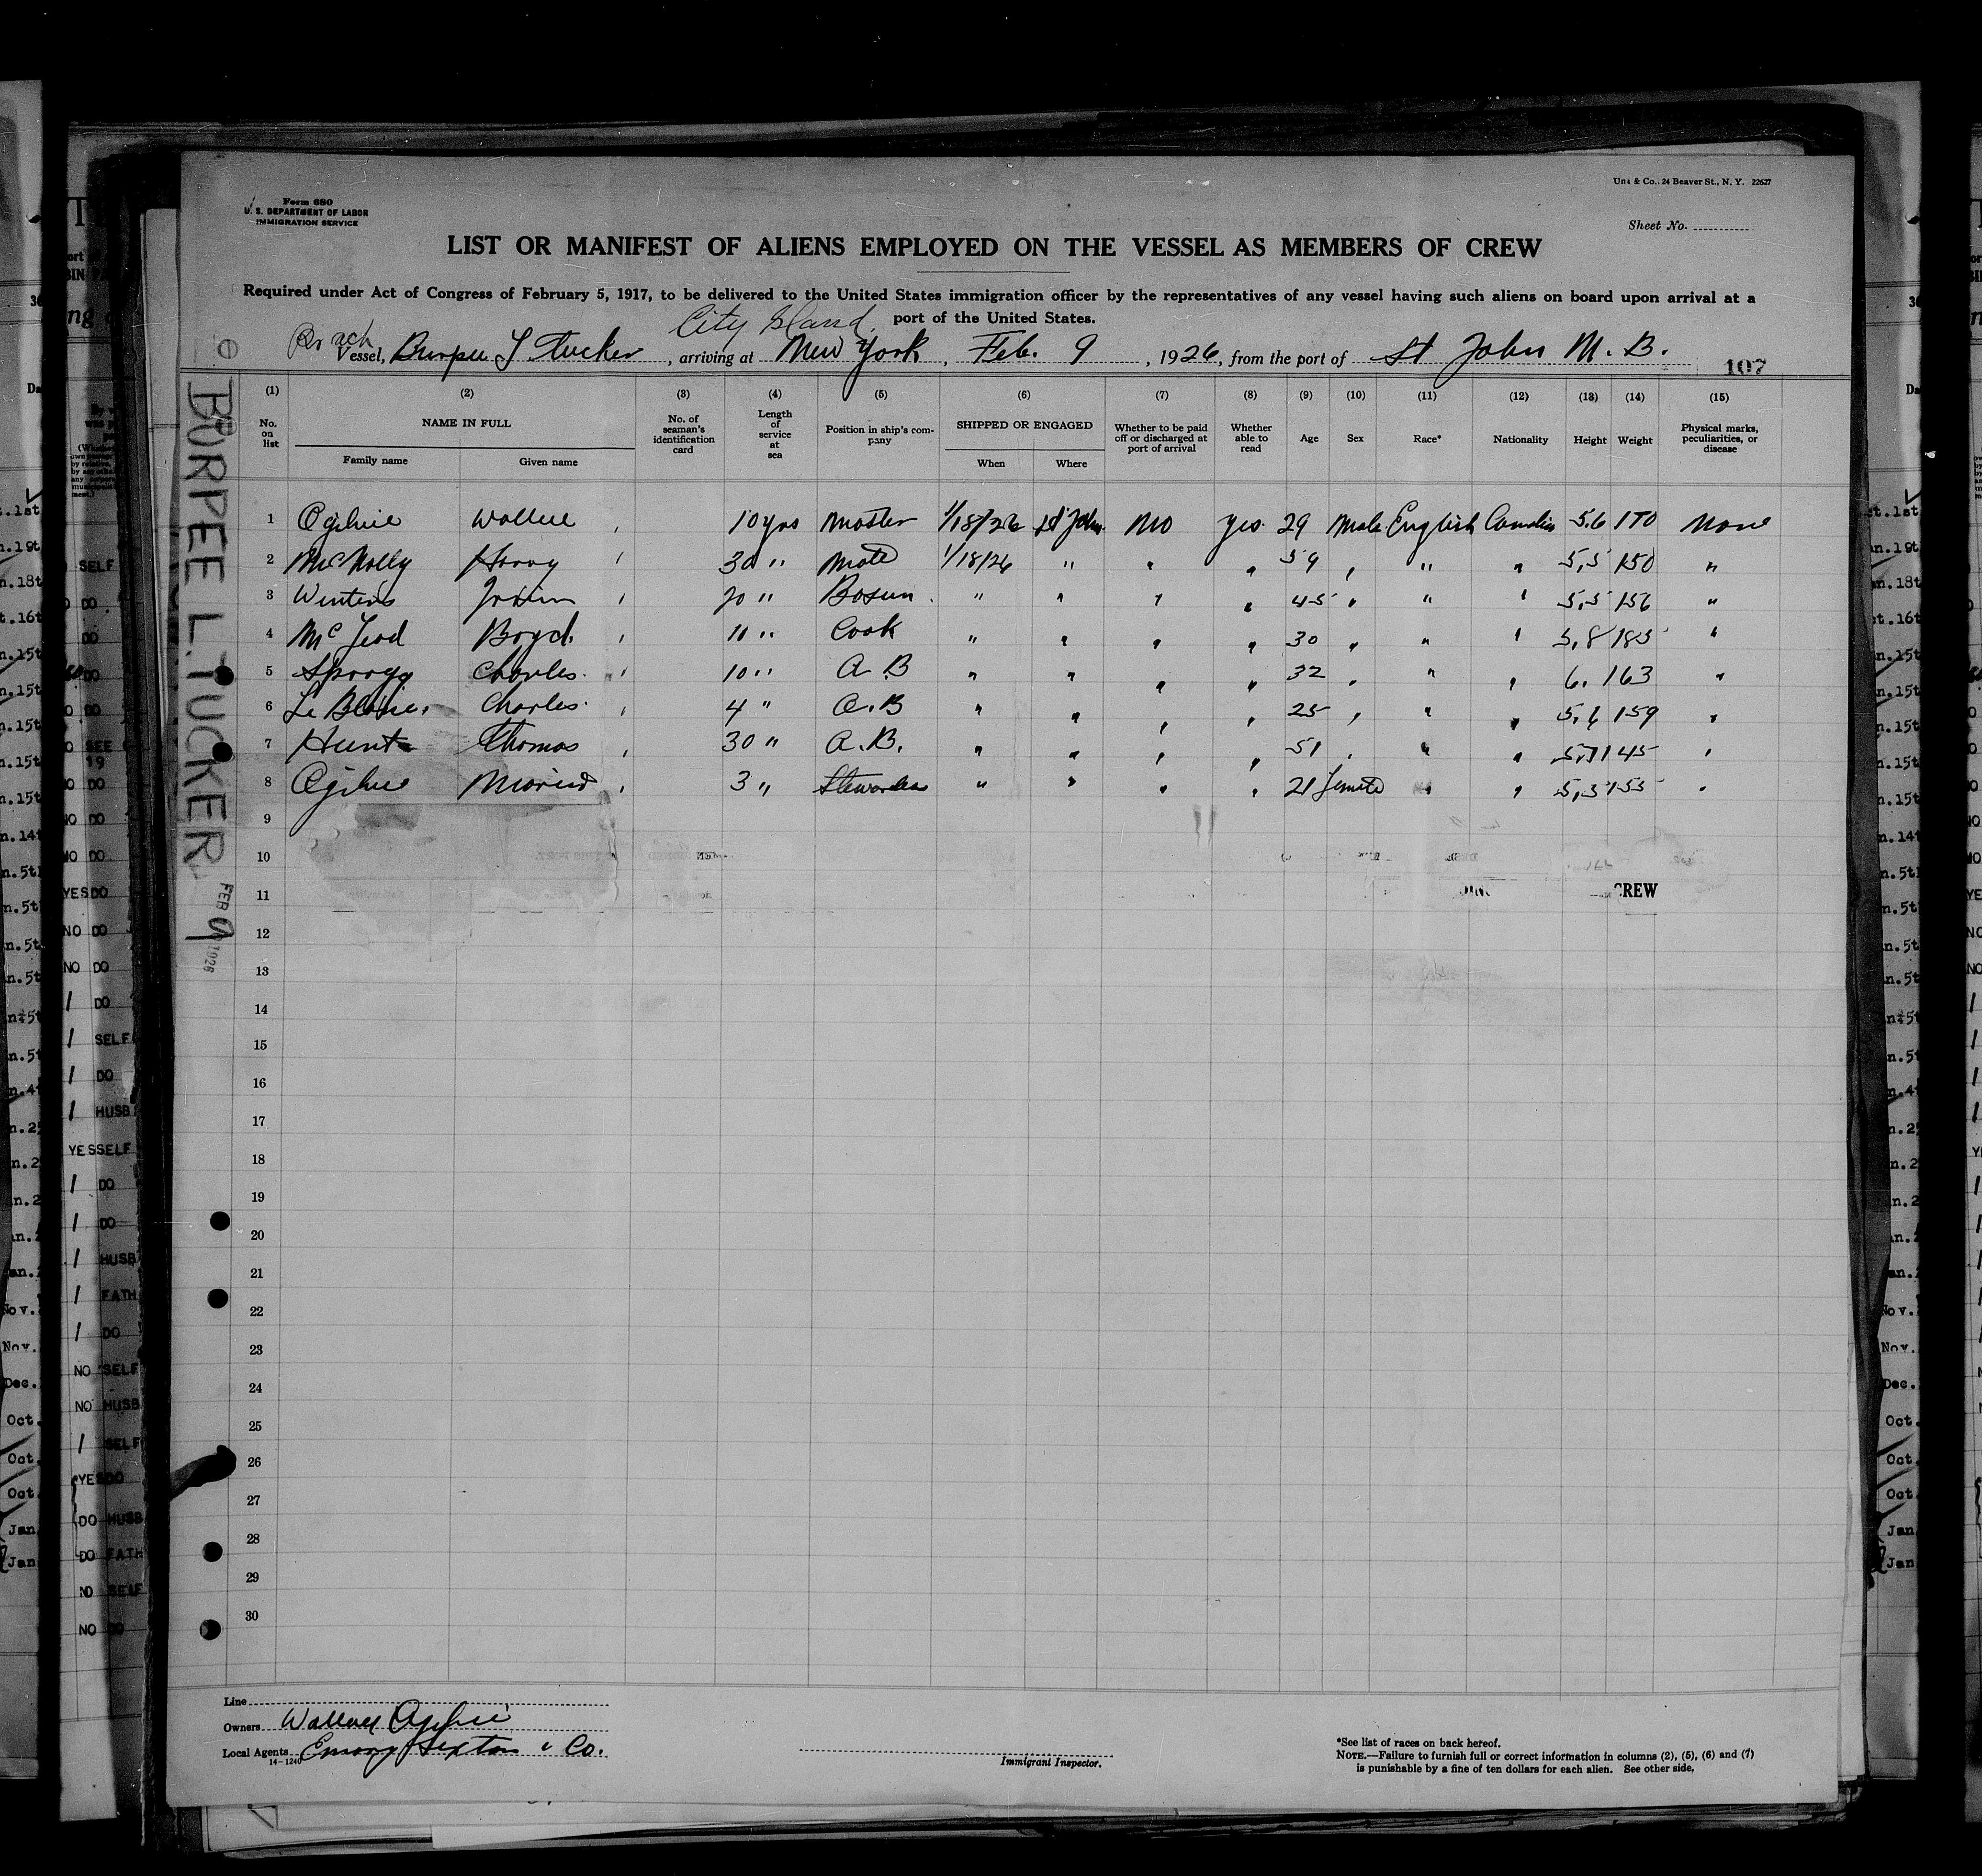 Unz & Co., 24 Beaver St., N. Y. 22627
Form 680
U. S. DEPARTMENT OF LABOR
IMMIGRATION SERVICE
Sheet No.
LIST OR MANIFEST OF ALIENS EMPLOYED ON THE VESSEL AS MEMBERS OF CREW
Required under Act of Congress of February 5, 1917, to be delivered to the United States immigration officer by the representatives of any vessel having such aliens on board upon arrival at a
port of the United States.
City Island
Vessel, Burpee L Tucker, arriving at New York, Feb. 9, 1926, from the port of St John N. B.
107
BURPEE L. TUCKER
FEB 9 1926
(1) (2) (3) (4) (5) (6) (7) (8) (9) (10) (11) (12) (13) (14) (15)
No. on list NAME IN FULL No. of seaman's identification card Length of service at sea Position in ship's company SHIPPED OR ENGAGED Whether to be paid off or discharged at port of arrival Whether able to read Age Sex Race* Nationality Height Weight Physical marks, peculiarities, or disease
Family name Given name When Where
1 Ogilvie Wallace 10 yrs Master 1/18/26 St John No Yes 29 Male English Canadian 5.6 170 None
2 McNally Harry 30 " Mate 1/18/26 " " " 59 " " " 5,5 150 "
3 Winters 20 " Bosun " " " " 45 " " " 5,5 156 "
4 McLeod Boyd 11 " Cook " " " " 30 " " " 5,8 185 "
5 Spragg Charles 10 " A B " " " " 32 " " " 6. 163 "
6 Le Blanc Charles 4 " A.B " " " " 25 " " " 5,6 159 "
7 Hunt Thomas 30 " A.B. " " " " 51 " " " 145 "
8 Ogilvie 3 " Stewardess " " " " 21 Female " " 5,3 153 "
9
10
11 CREW
12
13
14
15
16
17
18
19
20
21
22
23
24
25
26
27
28
29
30
Line
Owners Wallace Ogilvie
Local Agents Emory Sexton & Co.
14-1240
Immigrant Inspector.
*See list of races on back hereof.
NOTE.—Failure to furnish full or correct information in columns (2), (5), (6) and (7)
is punishable by a fine of ten dollars for each alien. See other side.